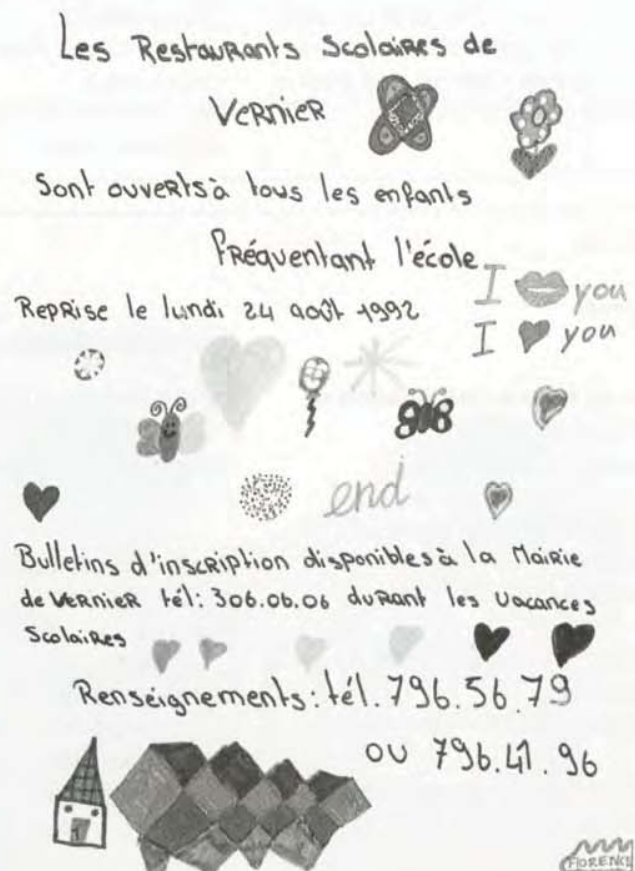 Les Restaurants Scolaires de
Vernier
Sont ouverts à tous les enfants
Fréquentant l'école
I you
I you
Reprise le lundi 24 août 1992
end
Bulletins d'inscription disponibles à la Mairie
de Vernier tél: 306.06.06 durant les vacances
Scolaires
Renseignements: tél. 796.56.79
ou 796.41.96
FLORENCE